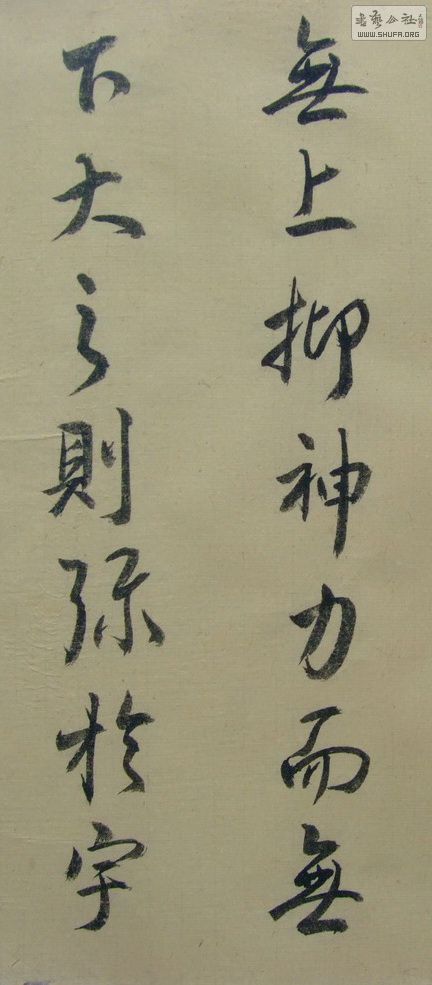 無上抑神力而無
下大之則弥於宇
書藝公社
WWW.SHUFA.ORG